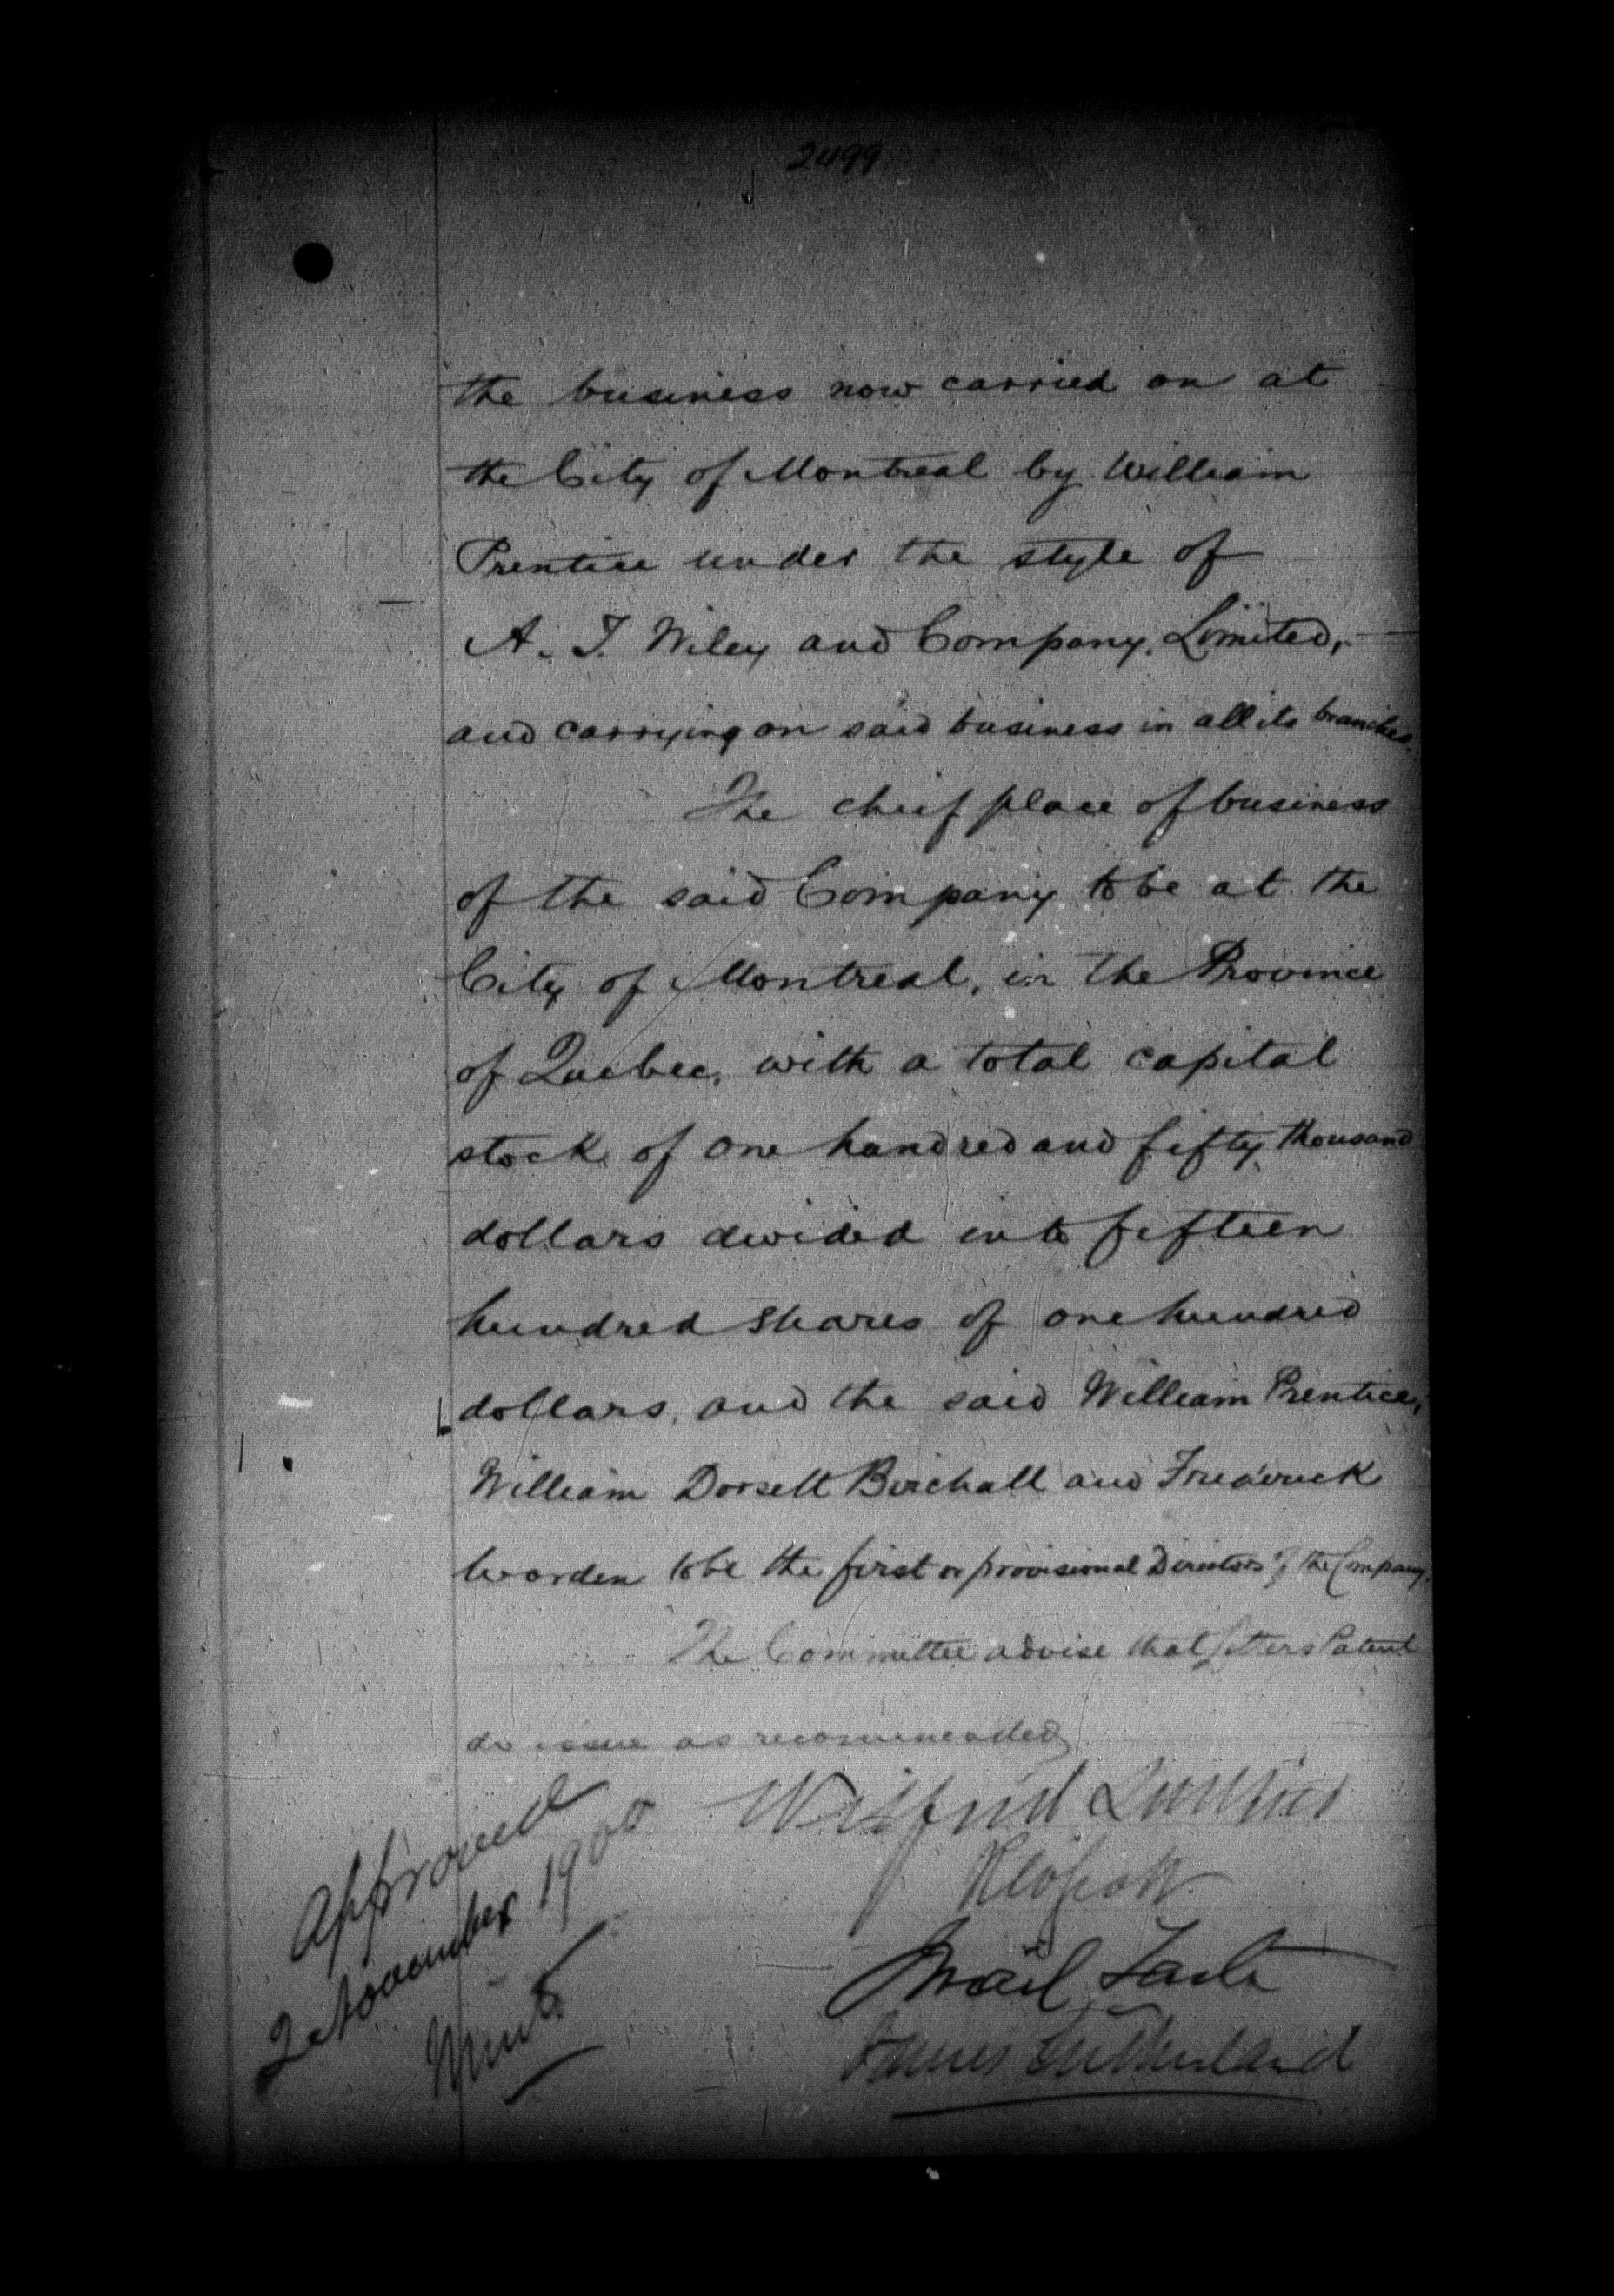 2499
the business now carried on at
the City of Montreal by William
Prentice under the style of
A. T. Wiley and Company, Limited,
and carrying on said business in all its branches.
The chief place of business
of the said Company to be at the
City of Montreal, in the Province
of Quebec, with a total capital
stock of one hundred and fifty thousand
dollars divided into fifteen
hundred shares of one hundred
dollars, and the said William Prentice,
William Dorsett Birchall and Frederick
Worden to be the first or provisional Directors of the Company.
The Committee advise that Letters Patent
do issue as recommended
Wilfrid Laurier
RWScott
Approved
2 November 1900
Minto
J Israel Tarte
James Sutherland